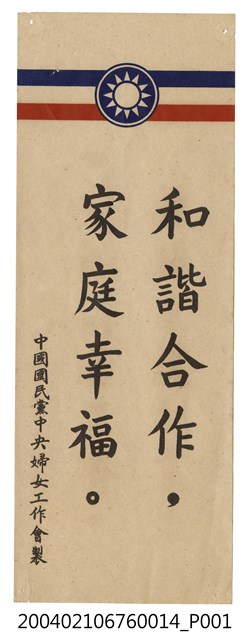 和諧合作，
家庭幸福。
中國國民黨中央婦女工作會製
200402106760014_P001